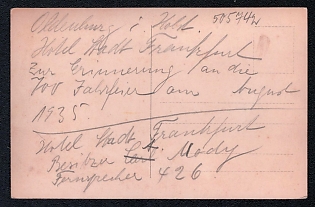 Oldenburg i Holst. 505742
Hotel Stadt Frankfurt
Zur Erinnerung an die
700 Jahrfeier am August
1935.
Hotel Stadt Frankfurt
Besitzer A. Mody
Fernsprecher 426